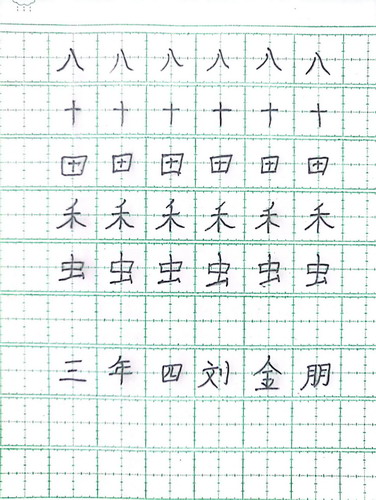 八八八八八八
十十十十十十
田田田田田田
禾禾禾禾禾禾
虫虫虫虫虫虫
三年四刘金朋